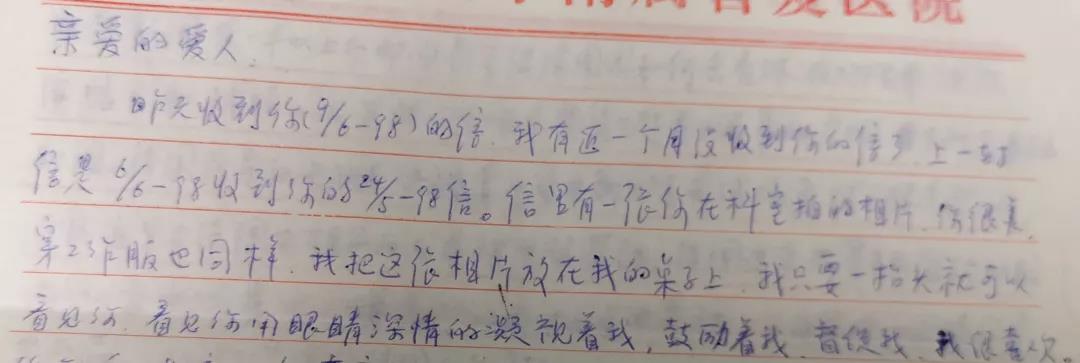 附属省发医院
亲爱的爱人.
昨天收到你(9/6-98)的信. 我有近一个月没收到你的信了. 上一封
信是 6/6-98收到你的24/5-98信。信里有一张你在科室拍的相片. 你很美.
穿工作服也同样. 我把这张相片放在我的桌子上. 我只要一抬头就可以
看见你. 看见你用眼睛深情的凝视着我, 鼓励着我. 督促我. 我很喜